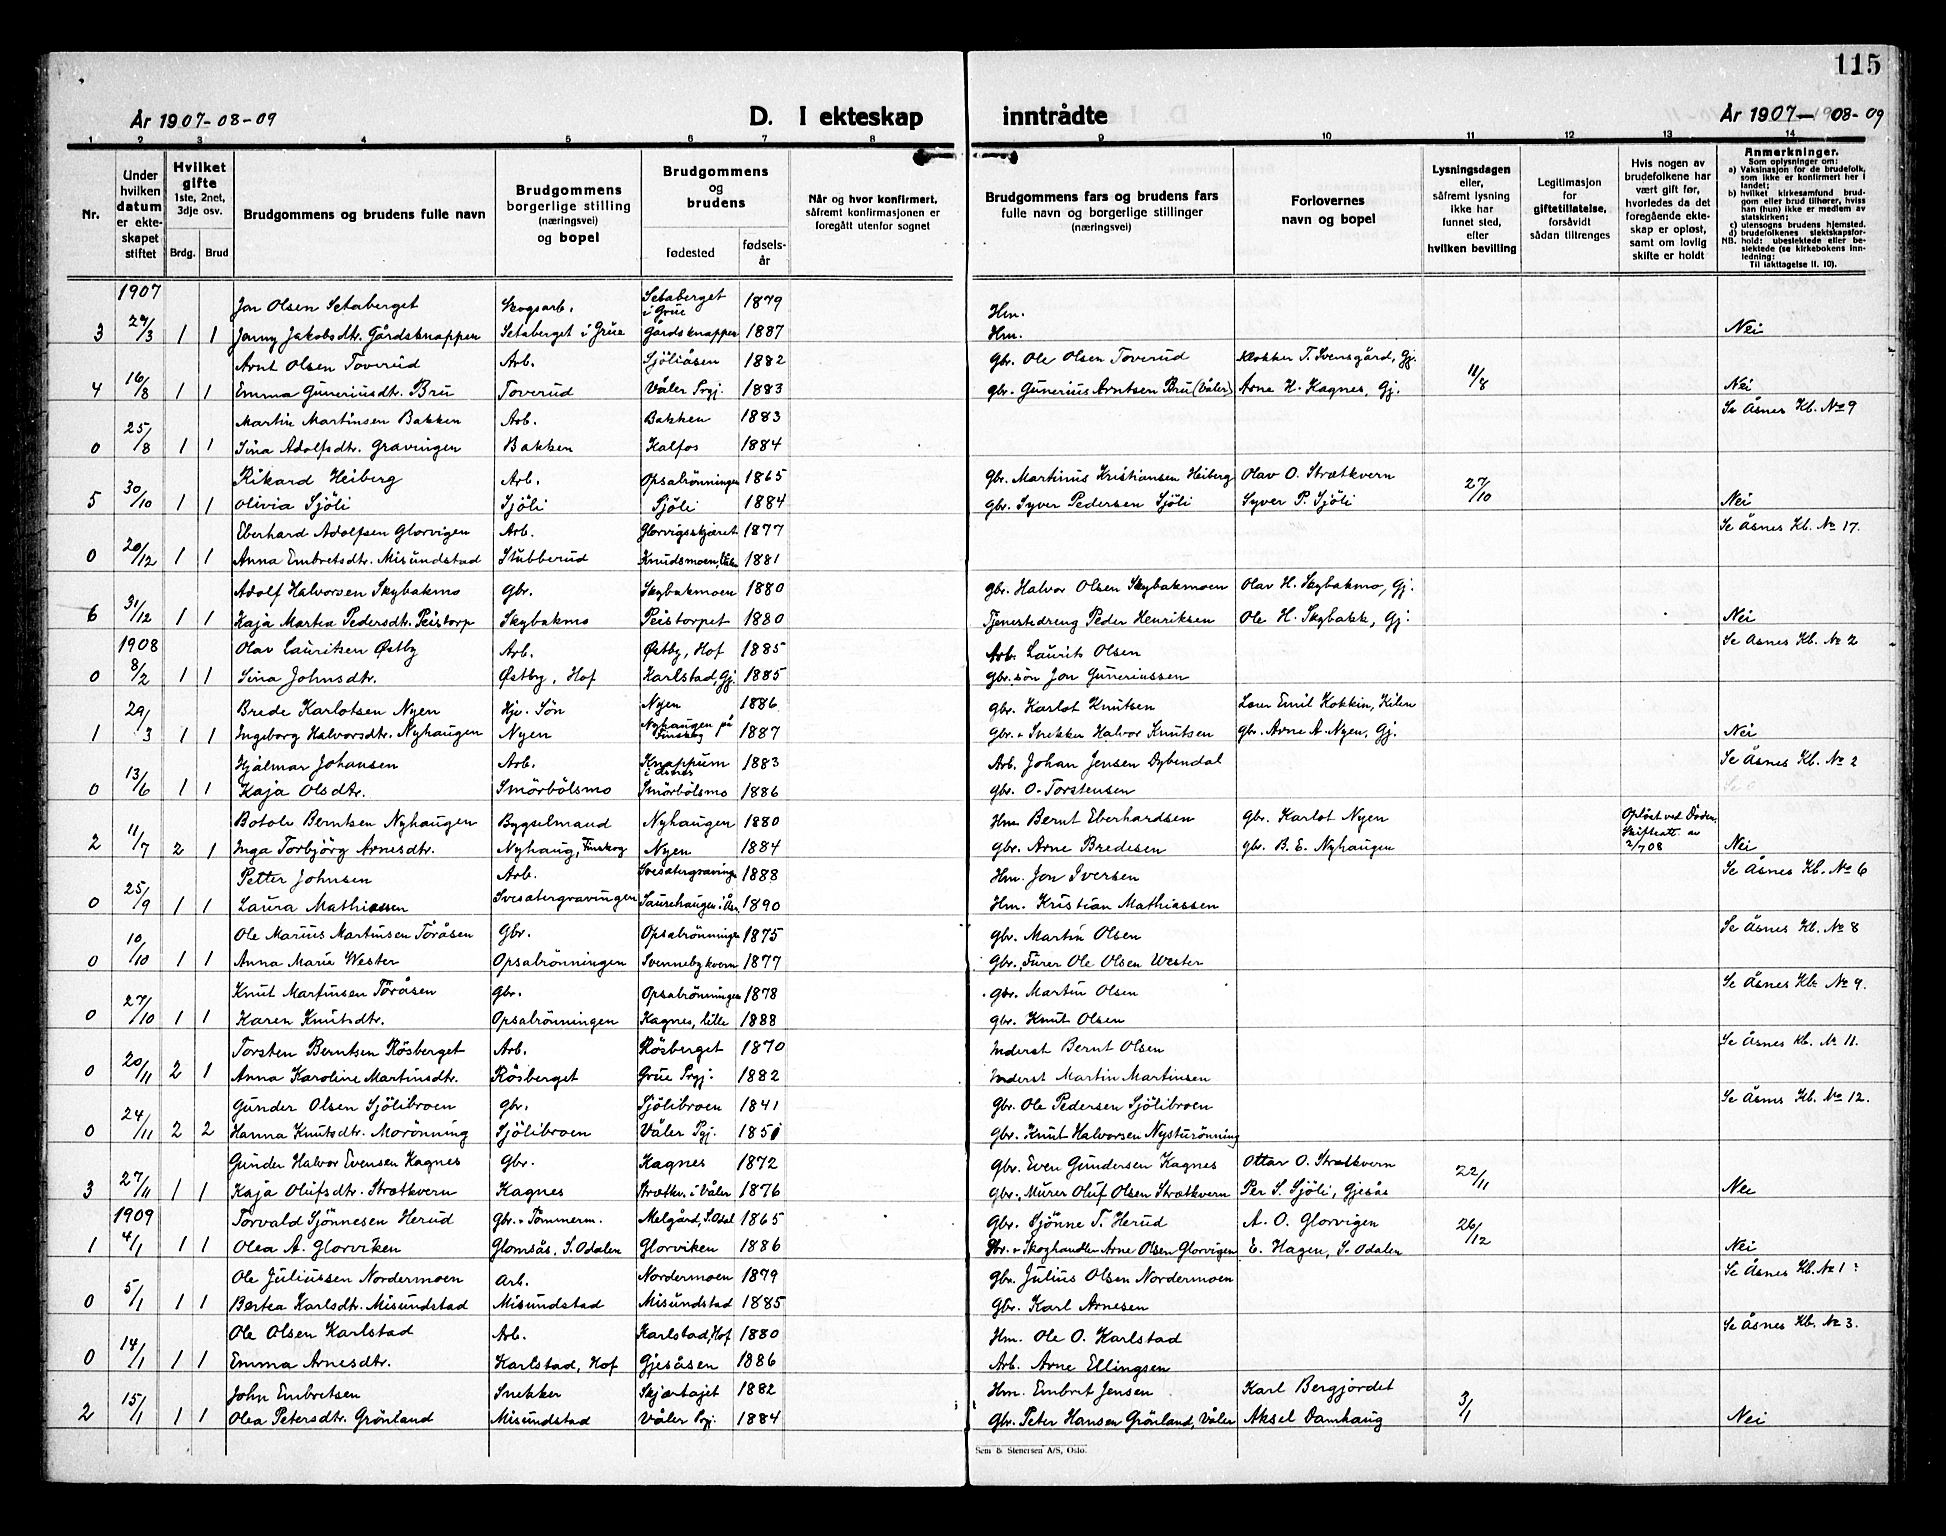 115
År 1907-08-09
D. I ekteskap inntrådte
År 1907-08-09
1 2 3 4 5 6 7 8 9 10 11 12 13 14
Nr.
Under hvilken datum er ekteskapet stiftet
Hvilket gifte 1ste, 2net, 3dje osv.
Brdg. Brud
Brudgommens og brudens fulle navn
Brudgommens borgerlige stilling (næringsvei) og bopel
Brudgommens og brudens
fødested
fødselsår
Når og hvor konfirmert, såfremt konfirmasjonen er foregått utenfor sognet
Brudgommens fars og brudens fars fulle navn og borgerlige stillinger (næringsvei)
Forlovernes navn og bopel
Lysningsdagen eller, såfremt lysning ikke har funnet sted, efter hvilken bevilling
Legitimasjon for giftetillatelse, forsåvidt sådan tiltrenges
Hvis nogen av brudefolkene har vært gift før, hvorledes da det foregående ekteskap er opløst, samt om lovlig skifte er holdt
Anmerkninger.
Som oplysninger om:
a) Vaksinasjon for de brudefolk, som ikke er konfirmert her i landet;
b) hvilket kirkesamfund brudgom eller brud tilhører, hviss han (hun) ikke er medlem av statskirken;
c) utensogns brudens hjemsted.
d) brudefolkenes slektskapsforhold: ubeslektede eller beslektede (se kirkebokens innledning:
NB. Til iakttagelse ll. 10).
1907
Jon Olsen Setaberget Skogsarb. Setaberget i Grue 1879 Hm.
3 24/3 1 1 Jonny Jakobsdtr. Gårdsknappen Setaberget i Grue Gårdsknappen 1887 Hm. Nei
Arnt Olsen Toverud Arb. Sjöliåsen 1882 Gbr. Ole Olsen Toverud Klokker T. Svensgård, Gj.
4 16/8 1 1 Emma Guneriusdtr. Bru Toverud Våler Prgj. 1883 gbr. Gunerius Arntsen Bru (Våler) Arne H. Kagnes, Gj. 11/8 Nei
Martin Martinsen Bakken Arb. Bakken 1883 Se Åsnes Kb. No 9
0 25/8 1 1 Sina Adolfsdtr. Gravingen Bakken Kalfos 1884
Rikard Heiberg Arb. Opsalrönningen 1865 gbr. Martinus Kristiansen Heiberg Olav O. Strætkvern
5 30/10 1 1 Olivia Sjöli Sjöli Sjöli 1884 gbr. Syver Pedersen Sjöli Syver P. Sjöli 27/10 Nei
Eberhard Adolfsen Glorvigen Arb. Glorvigsskjæret 1877 Se Åsnes Kb. No 17.
0 20/12 1 1 Anna Embretsdtr. Misundstad Stubberud Knudsmoen, 1881
Adolf Halvorsen Skybakmo Gbr. Skybakmoen 1880 gbr. Halvor Olsen Skybakmoen Olav H. Skybakmo, Gj.
6 31/12 1 1 Kaja Martea Pedersdtr. Peistorp Skybakmo Peistorpet 1880 Tjenestedreng Peder Henriksen Ole H. Skybakk, Gj. Nei
1908 Olav Lauritsen Østby Arb. Østby, Hof 1885 Arb. Laurits Olsen Se Åsnes Kb. No 2
0 8/2 1 1 Sina Johnsdtr. Østby, Hof Karlstad, Gj. 1885 gbr. sön Jon Guneriussen
Brede Karlotsen Nyen Hje. Søn Nyen 1886 gbr. Karlot Knutsen Emil Kokkin, Kilen
1 29/3 1 1 Ingeborg Halvorsdtr. Nyhaugen Nyen Nyhaugen på Finskog 1887 Gbr. + Snekker Halvor Knutsen gbr. Arne A. Nyen, Gj. Nei
Hjalmar Johansen Arb. Knappum i Åsnes 1883 Arb. Johan Jensen Dybendal Se Åsnes Kb. No 2
0 13/6 1 1 Kaja Olsdtr. Smörbölsmo Smörbölsmo 1886 gbr. O. Torstensen
Botolv Berntsen Nyhaugen Bygselmand Nyhaugen 1880 Hm Bernt Eberhardsen gbr. Karlot Nyen Opløst ved Döden. Skifteatt. av 2/7 08
2 11/7 2 1 Inga Torbjörg Arnesdtr. Nyhaug, Finskog Nyen 1884 gbr. Arne Bredesen gbr. B. E. Nyhaugen Nei
Petter Johnsen Arb. Svesætergravingen 1888 Hm. Jon Iversen Se Åsnes Kb. No 6
0 25/9 1 1 Laura Mathiassen Svesætergravingen Saurehaugen i Åsn. 1890 Hm. Kristian Mathiassen
Ole Marius Martinsen Töråsen Gbr. Opsalrönningen 1875 gbr. Martin Olsen Se Åsnes Kb. No 8
0 10/10 1 1 Anna Marie Wester Opsalrönningen Svennebykvern 1877 Gbr., Furer Ole Olsen Wester
Knut Martinsen Töråsen Gbr. Opsalrönningen 1878 gbr. Martin Olsen Se Åsnes Kb. No 9.
0 27/10 1 1 Karen Knutsdtr. Opsalrönningen Kagnes, lille 1888 gbr. Knut Olsen
Torsten Berntsen Rösberget Arb. Rösberget 1870 Inderst Bernt Olsen Se Åsnes Kb. No 11.
0 20/11 2 1 Anna Karoline Martinsdtr. Rösberget Grue Prgj. 1882 Inderst Martin Martinsen
Gunder Olsen Sjölibroen Gbr. Sjölibroen 1841 Gbr. Ole Pedersen Sjölibroen Se Åsnes Kb. No 12.
0 24/11 2 2 Hanna Knutsdtr. Morönning Sjölibroen Våler Pgj. 1851 Gbr. Knut Halvorsen Nysturönning
Gunder Halvor Evensen Kagnes Gbr. Kagnes 1872 Gbr. Even Gundersen Kagnes Ottar O. Strætkvern
3 27/11 1 1 Kaja Olufsdtr. Strætkvern Kagnes Strætkv. i Våler 1876 Gbr. Murer Oluf Olsen Strætkvern Per S. Sjöli, Gjesås 22/11 Nei
1909 Torvald Sjönnesen Herud Gbr. + Tömmerm. Melgård, S. Odal 1865 Gbr. Sjönne T. Herud A. O. Glorvigen
1 4/1 1 1 Olea A. Glorviken Glomsås, S. Odalen Glorviken 1886 Gbr. + Skoghandler Arne Olsen Glorvigen E. Hagen, S. Odalen 26/12 Nei
Ole Juliussen Nordermoen Arb. Nordermoen 1879 Gbr. Julius Olsen Nordermoen Se Åsnes Kb. No 1.
0 5/1 1 1 Bertea Karlsdtr. Misundstad Misundstad Misundstad 1885 Gbr. Karl Arnesen
Ole Olsen Karlstad Arb. Karlstad, Hof 1880 Hm. Ole O. Karlstad Se Åsnes Kb. No 3.
0 14/1 1 1 Emma Arnesdtr. Karlstad, Hof Gjesåsen 1886 Arb. Arne Ellingsen
John Embretsen Snekker Skjærhajet 1882 Hm. Embret Jensen Karl Bergjordet
2 15/1 1 1 Olea Petersdtr. Grönland Misundstad Våler Prgj. 1884 Gbr. Peter Hansen Grönland, Våler Aksel Damhaug 3/1 Nei
Sem & Stenersen A/S, Oslo.